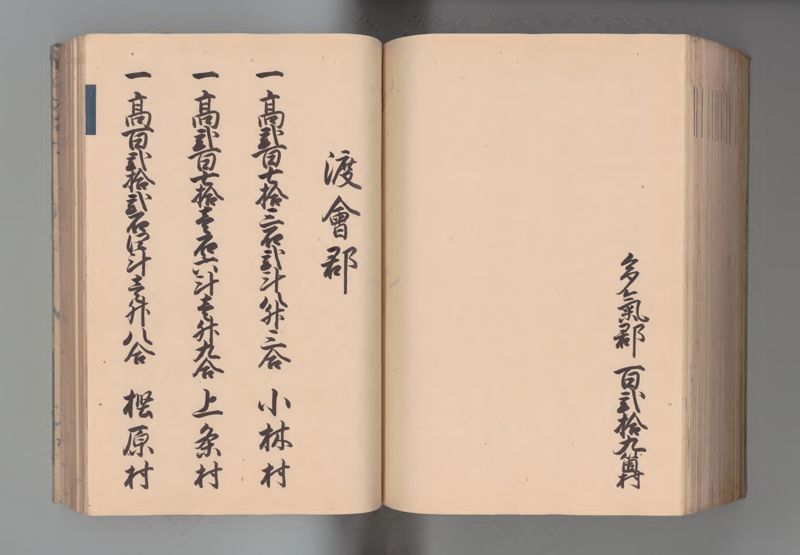 多氣郡 百弐拾九箇村
渡會郡
一 高弐百七拾三石弐斗八升三合 小林村
一 高弐百七拾壱石六斗壱升九合 上条村
一 高百弐拾弐石 斗壱升八合 樫原村